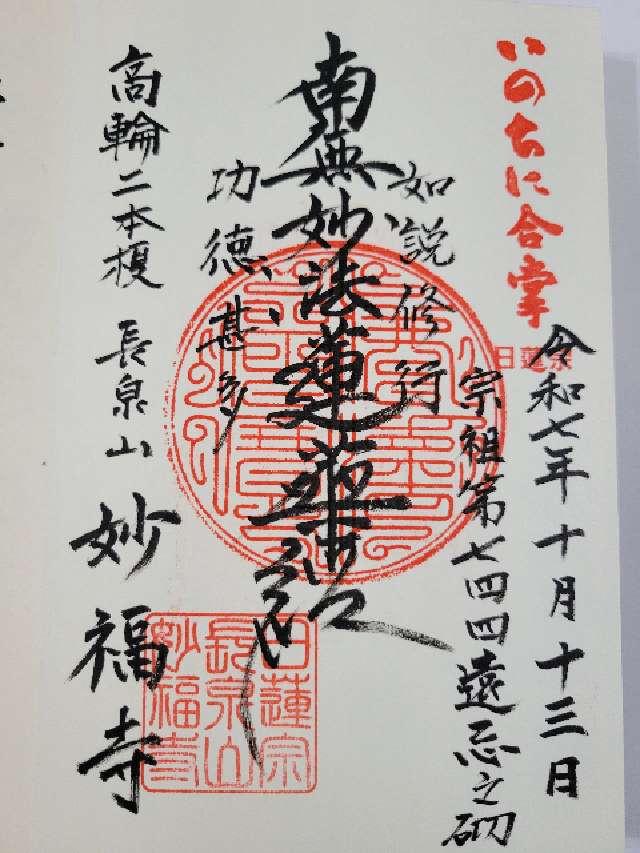 いのちに合掌
日蓮宗
令和七年十月十三日
宗祖第七四四遠忌之砌
如説修行
南無妙法蓮華経
功徳甚多
高輪二本榎 長泉山 妙福寺
日蓮宗
長泉山
妙福寺